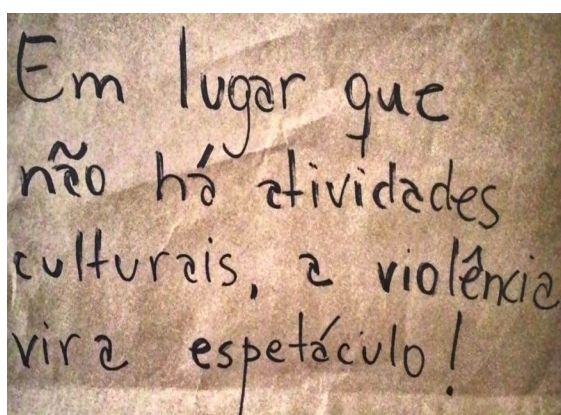 Em lugar que
não há atividades
culturais, a violência
vira espetáculo!